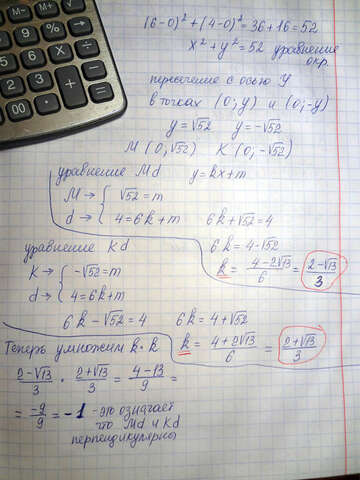 (6-0)² + (4-0)² = 36 + 16 = 52
x² + y² = 52 уравнение
окр.
пересечение с осью y
в точках (0; y) и (0; -y)
y = √52 y = -√52
M (0, √52) K (0; -√52)
уравнение Md y = kx + m
M → { √52 = m
d → { 4 = 6k + m 6k + √52 = 4
6k = 4 - √52
k = (4 - 2√13)/6 = (2 - √13)/3
уравнение Kd
K → { -√52 = m
d → { 4 = 6k + m
6k - √52 = 4 6k = 4 + √52
k = (4 + 2√13)/6 = (2 + √13)/3
Теперь умножим k · k
(2 - √13)/3 · (2 + √13)/3 = (4 - 13)/9 =
= -9/9 = -1 - это означает
что Md и Kd
перпендикулярны
M-
M+